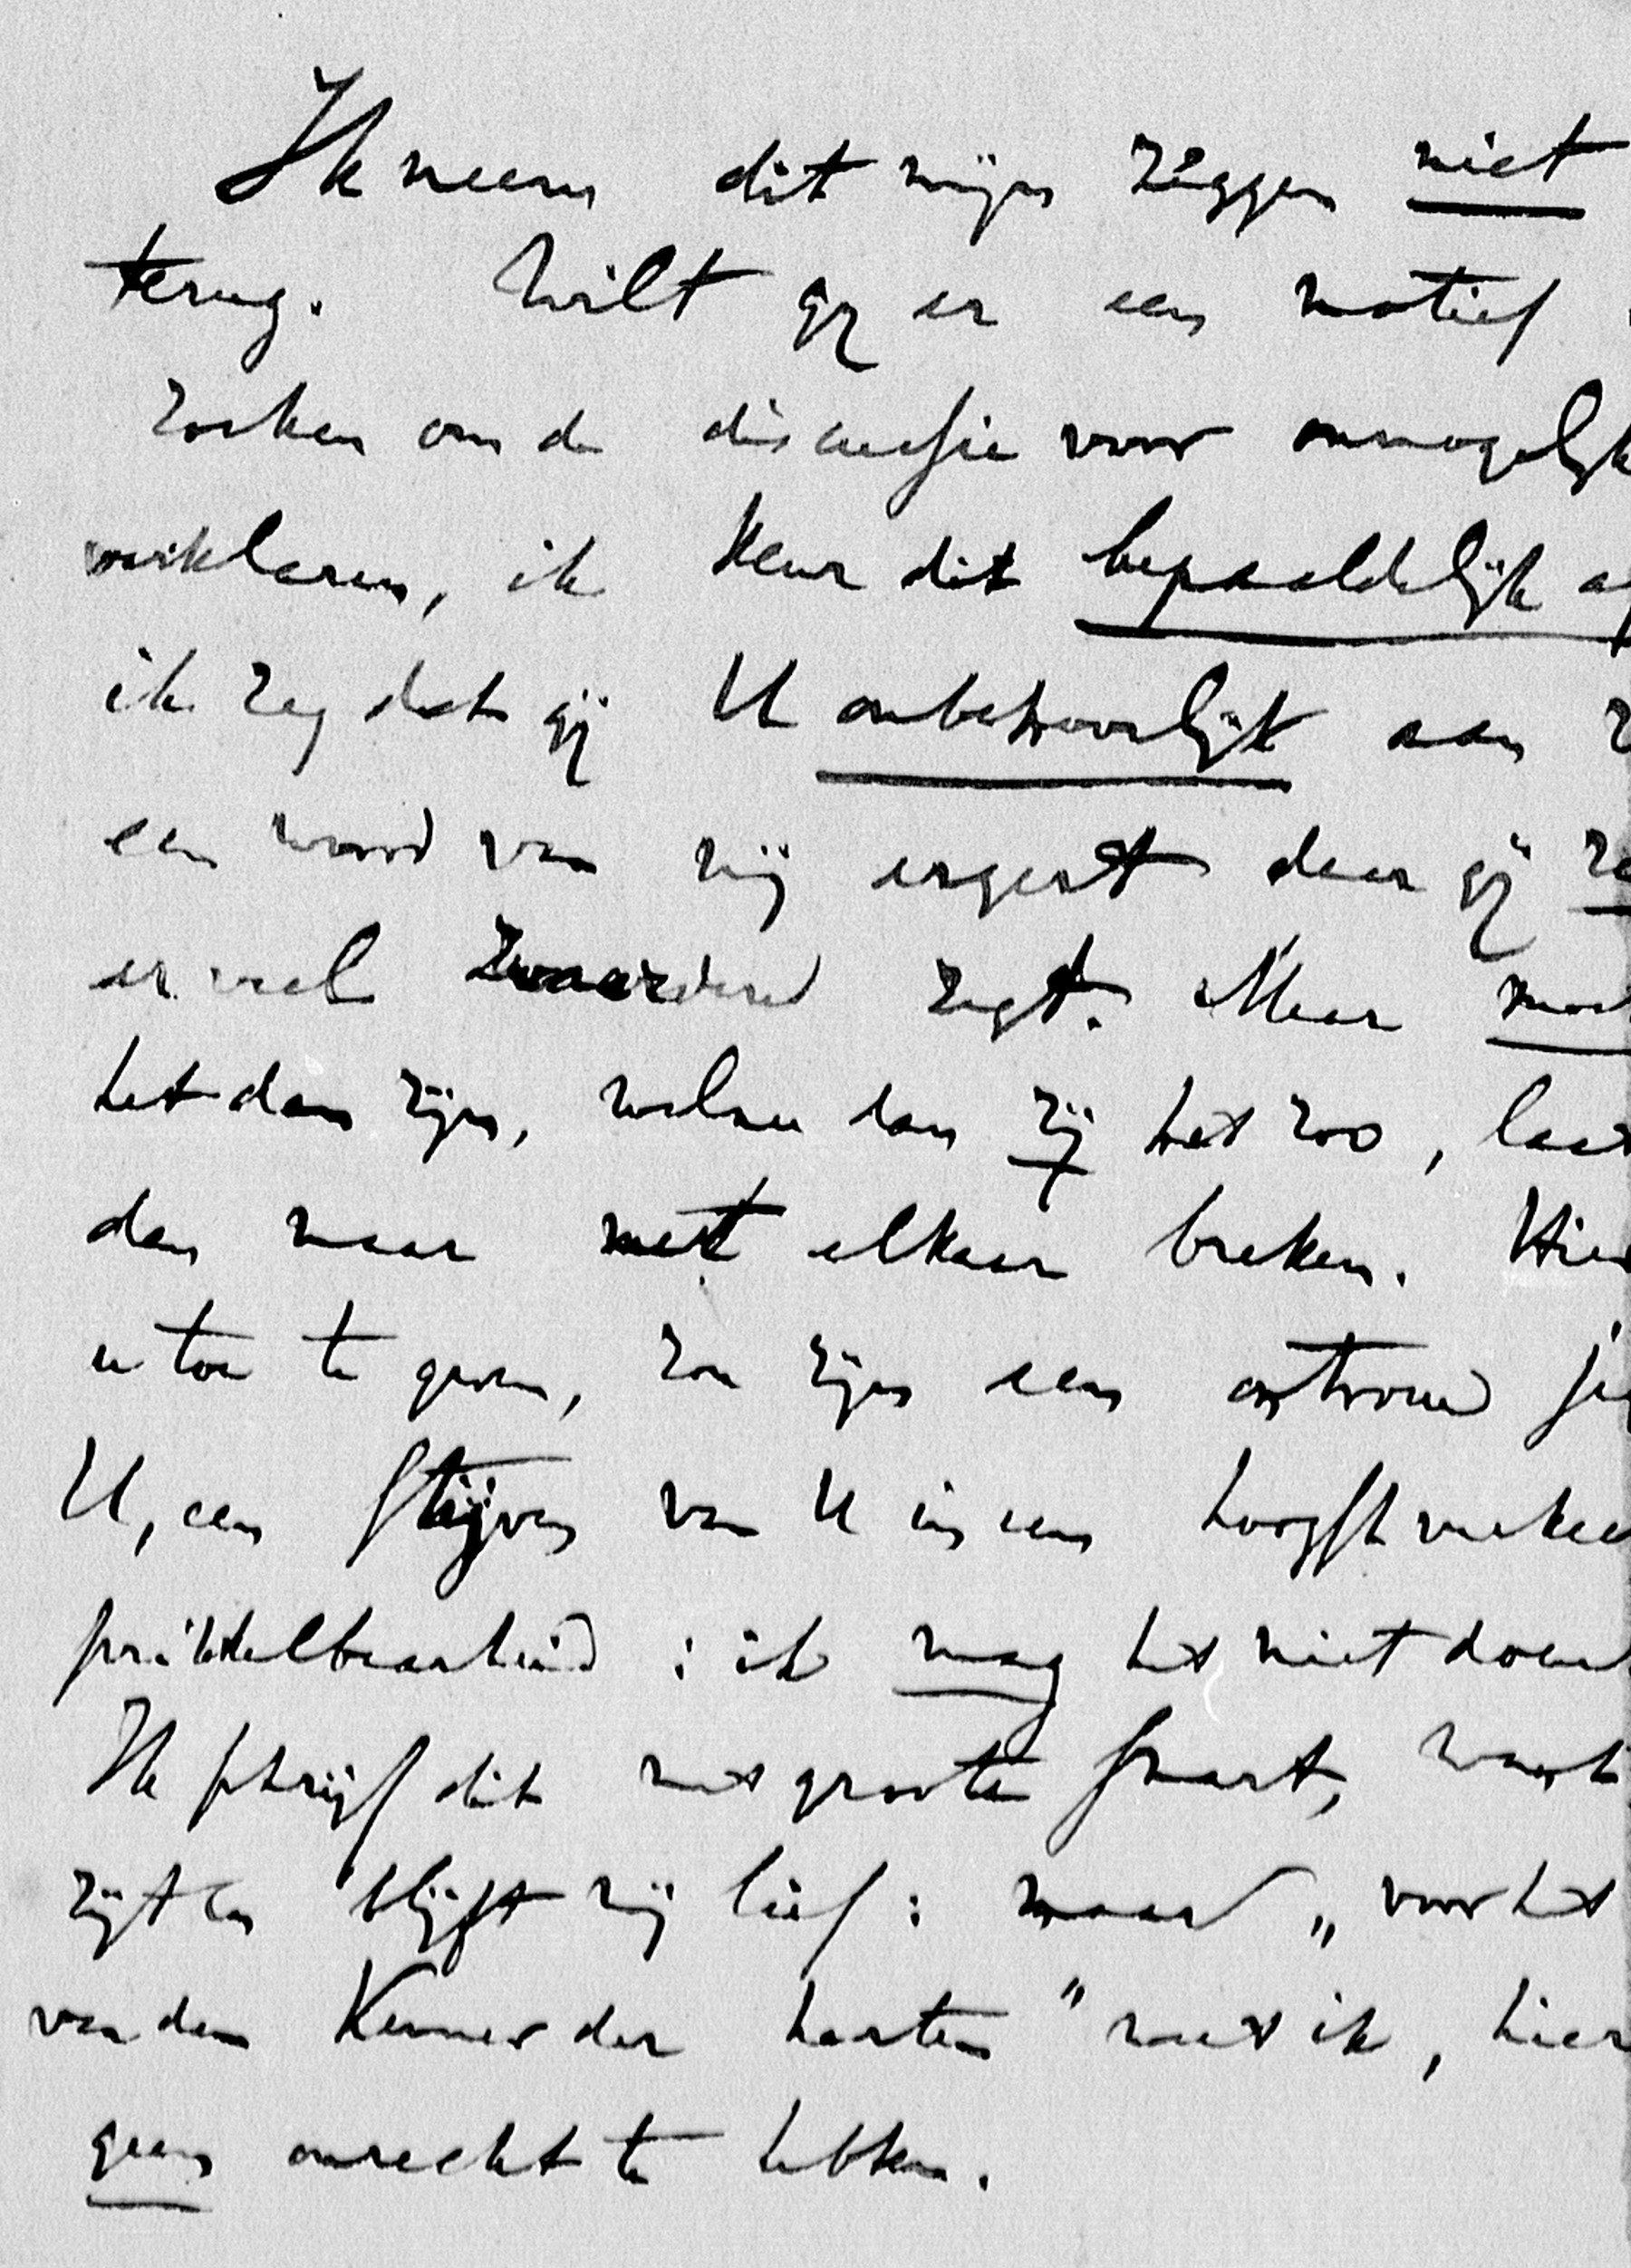 Ik neem dit mijn zeggen niet
terug. Wilt gij er een motief
zoeken om de discussie voor onmogelijk
verklaren, ik keur dit bepaaldelijk af
ik zeg dat gij U onbehoorlijk aan
een woord van mij ergert daar gij
er veel zwaardere zegt. Maar moet
het dan zijn, welnu dan zij het zoo, laat
dan maar met elkaar breken. Hier
u toe te geven, zou zijn een ontrouw
U, een stijven van U in een hoogst
prikkelbaarheid : ik mag het niet doen
Ik schrijf dit met groote smart, want
zijt en blijft mij lief : maar „voor het
van den Kenner der harten" weet ik, hier
geen onrecht te hebben.